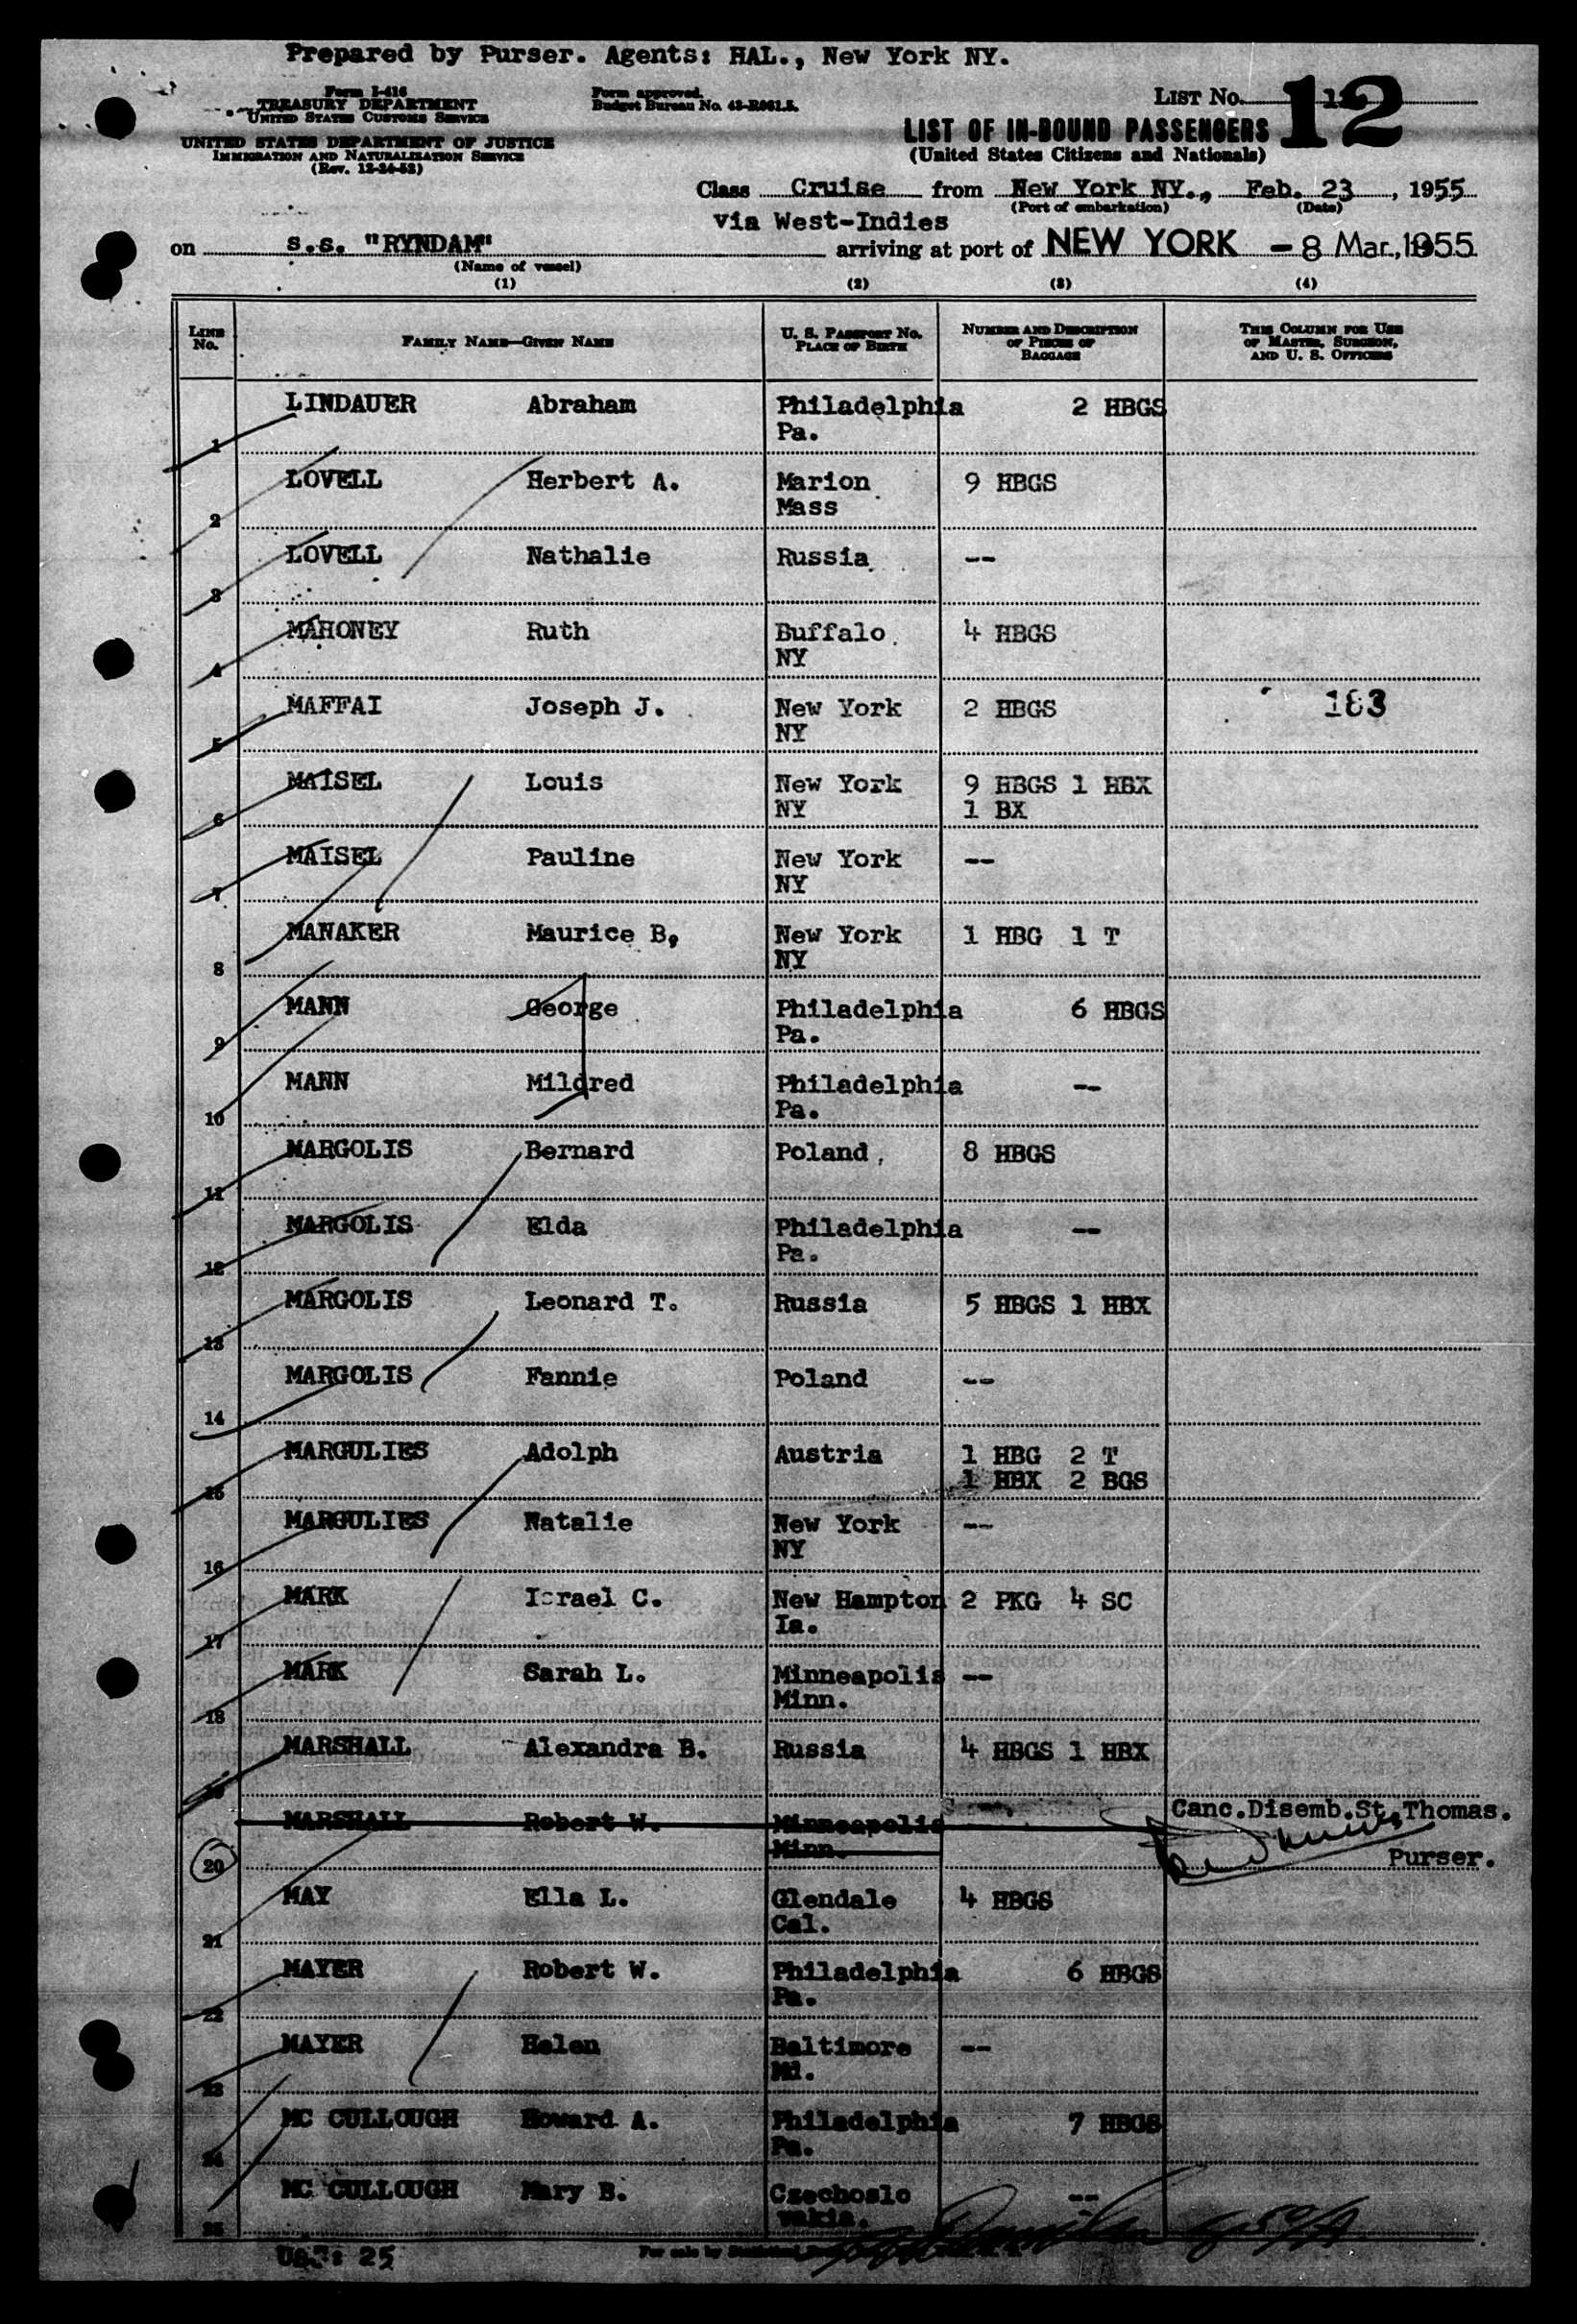 Prepared by Purser. Agents: HAL., New York NY.
Form I-416
TREASURY DEPARTMENT
UNITED STATES CUSTOMS SERVICE
UNITED STATES DEPARTMENT OF JUSTICE
IMMIGRATION AND NATURALIZATION SERVICE
(Rev. 12-24-52)
Form approved.
Budget Bureau No. 43-R061.5.
LIST No. 12
LIST OF IN-BOUND PASSENGERS
(United States Citizens and Nationals)
Class Cruise from New York NY., Feb. 23, 1955
(Port of embarkation) (Date)
via West-Indies
on s.s. "RYNDAM" arriving at port of NEW YORK - 8 Mar., 1955
(Name of vessel)
(1) (2) (3) (4)
LINE No. FAMILY NAME—GIVEN NAME U. S. PASSPORT No. PLACE OF BIRTH NUMBER AND DESCRIPTION OF PIECES OF BAGGAGE THIS COLUMN FOR USE OF MASTER, SURGEON, AND U. S. OFFICERS
LINDAUER Abraham Philadelphia 2 HBGS
1 Pa.
LOVELL Herbert A. Marion 9 HBGS
2 Mass
LOVELL Nathalie Russia --
3
MAHONEY Ruth Buffalo 4 HBGS
4 NY
MAFFAI Joseph J. New York 2 HBGS 183
5 NY
MAISEL Louis New York 9 HBGS 1 HBX
6 NY 1 BX
MAISEL Pauline New York --
7 NY
MANAKER Maurice B, New York 1 HBG 1 T
8 NY
MANN George Philadelphia 6 HBGS
9 Pa.
MANN Mildred Philadelphia --
10 Pa.
MARGOLIS Bernard Poland 8 HBGS
11
MARGOLIS Elda Philadelphia --
12 Pa.
MARGOLIS Leonard T. Russia 5 HBGS 1 HBX
13
MARGOLIS Fannie Poland --
14
MARGULIES Adolph Austria 1 HBG 2 T
15 1 HBX 2 BGS
MARGULIES Natalie New York --
16 NY
MARK Israel C. New Hampton 2 PKG 4 SC
17 Ia.
MARK Sarah L. Minneapolis --
18 Minn.
MARSHALL Alexandra B. Russia 4 HBGS 1 HBX
19
MARSHALL Robert W. Minneapolis Canc.Disemb.St.Thomas.
20 Minn. Purser.
MAY Ella L. Glendale 4 HBGS
21 Cal.
MAYER Robert W. Philadelphia 6 HBGS
22 Pa.
MAYER Helen Baltimore --
23 Md.
MC CULLOUGH Howard A. Philadelphia 7 HBGS
24 Pa.
MC CULLOUGH Mary B. Czechoslo --
25 vakia.
25
For sale by